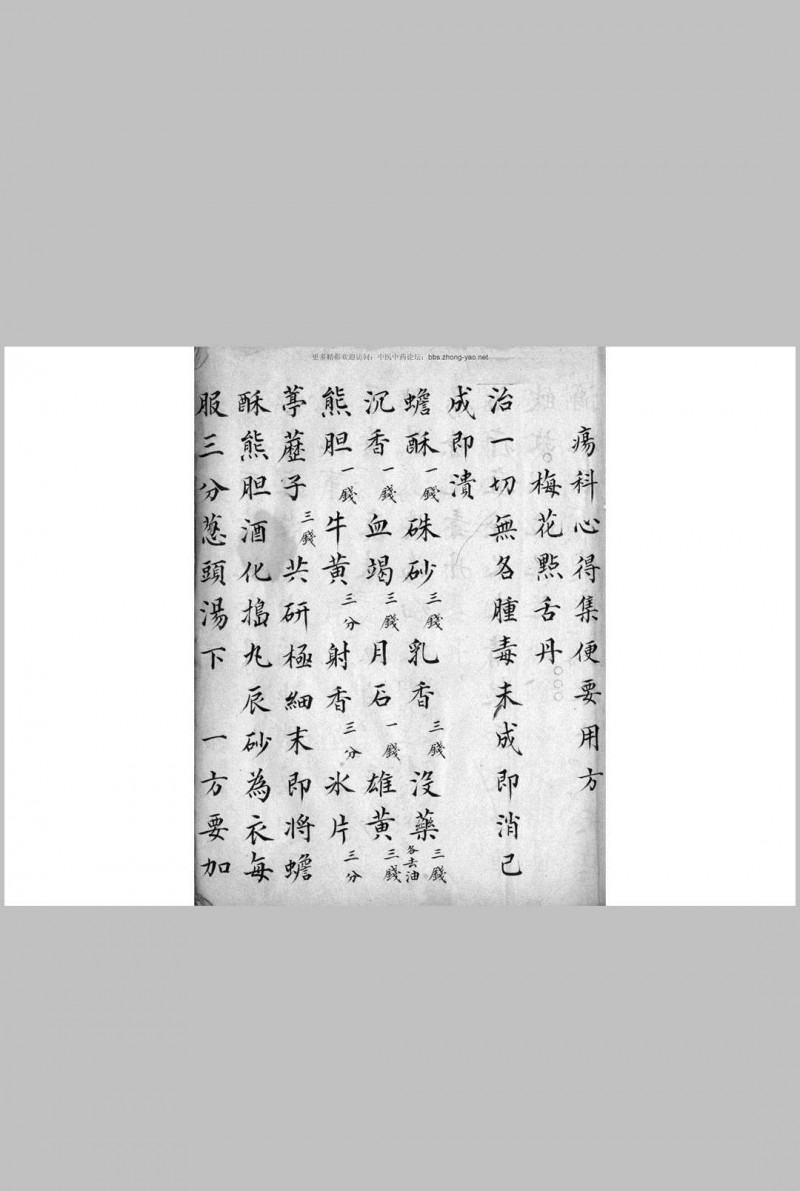 更多精彩欢迎访问：中医中药论坛：bbs.zhong-yao.net
瘍科心得集便要用方
梅花點舌丹
治一切無名腫毒未成即消已
成即潰
蟾酥一錢硃砂三錢乳香三錢没藥三錢各去油
沉香一錢血竭三錢月石一錢雄黃三錢
熊胆一錢牛黃三分射香三分氷片三分
葶藶子三錢共研極細末即将蟾
酥熊胆酒化搗丸辰砂為衣每
服三分葱頭湯下 一方要加